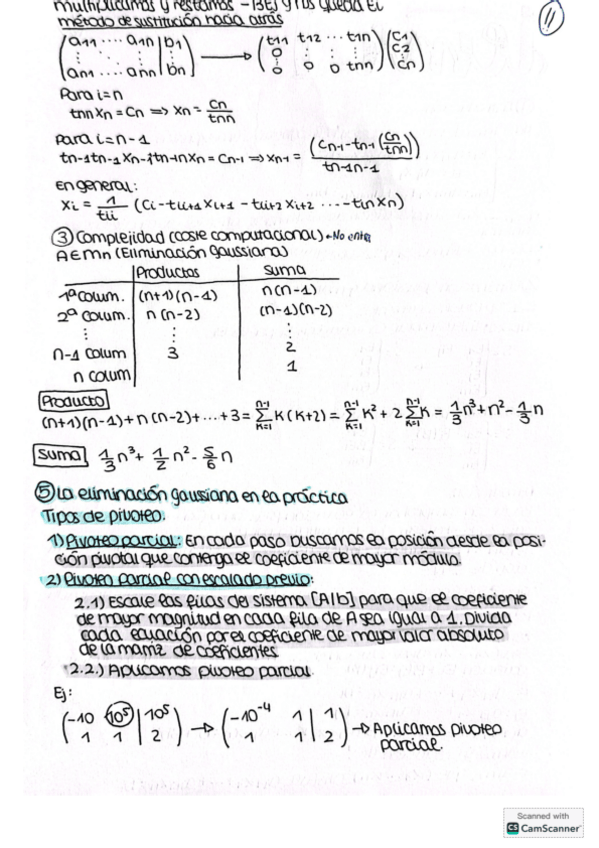 multiplicamos y restamos -13Ej y nos queda el
11
método de sustitución hacia atrás
(a11 ... a1n | b1 ⋮ ⋮ ⋮ an1 ... ann | bn) → (t11 t12 ... t1n 0 ⋮ ⋮ 0 0 tnn) (c1 c2 ⋮ cn)
Para i=n
tnnxn = cn ⇒ xn = cn/tnn
Para i=n-1
tn-1tn-1xn-1tn-1nxn = cn-1 ⇒ xn-1 = (cn-1-tn-1(cn/tnn))/tn-1n-1
En general:
xi = 1/tii (ci-tii+1xi+1 - tii+2xi+2 ... -tinxn)
③ Complejidad (coste computacional) ←No entra
A∈Mn (Eliminación gaussiana)
Productos Suma
1ª Colum. (n+1)(n-1) n(n-1)
2ª Colum. n(n-2) (n-1)(n-2)
⋮ ⋮ ⋮
n-1 colum 3 2
n colum 1
Producto
(n+1)(n-1)+n(n-2)+...+3 = ∑_{k=1}^{n-1} k(k+2) = ∑_{k=1}^{n-1} k² + 2 ∑_{k=1}^{n-1} k = 1/3 n³+n²- 1/3 n
Suma 1/3 n³ + 1/2 n² - 5/6 n
⑤ La eliminación gaussiana en la práctica
Tipos de pivoteo:
1) Pivoteo parcial: En cada paso buscamos la posición desde la posi-
ción pivotal que contenga el coeficiente de mayor módulo.
2) Pivoteo parcial con escalado previo:
2.1) Escale las filas del sistema [A|b] para que el coeficiente
de mayor magnitud en cada fila de A sea igual a 1. Divida
cada ecuación por el coeficiente de mayor valor absoluto
de la matriz de coeficientes
2.2.) Aplicamos pivoteo parcial.
Ej:
(-10 10⁵ | 10⁵ 1 1 | 2) → (-10⁻⁴ 1 | 1 1 1 | 2) → Aplicamos pivoteo
parcial.
Scanned with
CS CamScanner